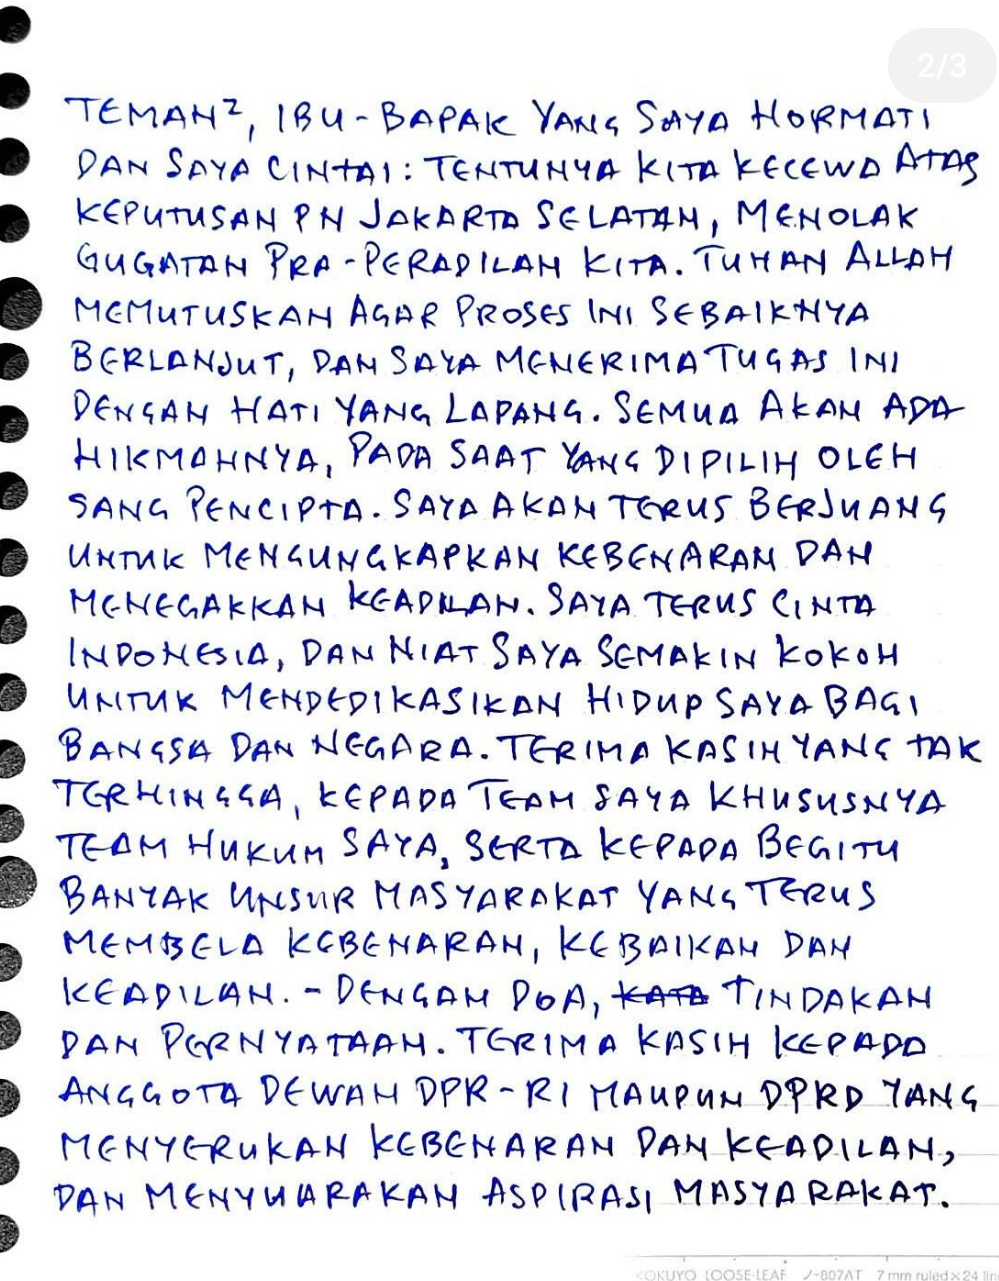 2/3
TEMAN², IBU-BAPAK YANG SAYA HORMATI
DAN SAYA CINTAI: TENTUNYA KITA KECEWA ATAS
KEPUTUSAN PN JAKARTA SELATAN, MENOLAK
GUGATAN PRA-PERADILAN KITA. TUHAN ALLAH
MEMUTUSKAN AGAR PROSES INI SEBAIKNYA
BERLANJUT, DAN SAYA MENERIMA TUGAS INI
DENGAN HATI YANG LAPANG. SEMUA AKAN ADA
HIKMAHNYA, PADA SAAT YANG DIPILIH OLEH
SANG PENCIPTA. SAYA AKAN TERUS BERJUANG
UNTUK MENGUNGKAPKAN KEBENARAN DAN
MENEGAKKAN KEADILAN. SAYA TERUS CINTA
INDONESIA, DAN NIAT SAYA SEMAKIN KOKOH
UNTUK MENDEDIKASIKAN HIDUP SAYA BAGI
BANGSA DAN NEGARA. TERIMA KASIH YANG TAK
TERHINGGA, KEPADA TEAM SAYA KHUSUSNYA
TEAM HUKUM SAYA, SERTA KEPADA BEGITU
BANYAK UNSUR MASYARAKAT YANG TERUS
MEMBELA KEBENARAN, KEBAIKAN DAN
KEADILAN. - DENGAN DOA, KATA TINDAKAN
DAN PERNYATAAN. TERIMA KASIH KEPADA
ANGGOTA DEWAN DPR-RI MAUPUN DPRD YANG
MENYERUKAN KEBENARAN DAN KEADILAN,
DAN MENYUARAKAN ASPIRASI MASYARAKAT.
KOKUYO LOOSE-LEAF ノ-807AT 7 mm ruled×24 lin